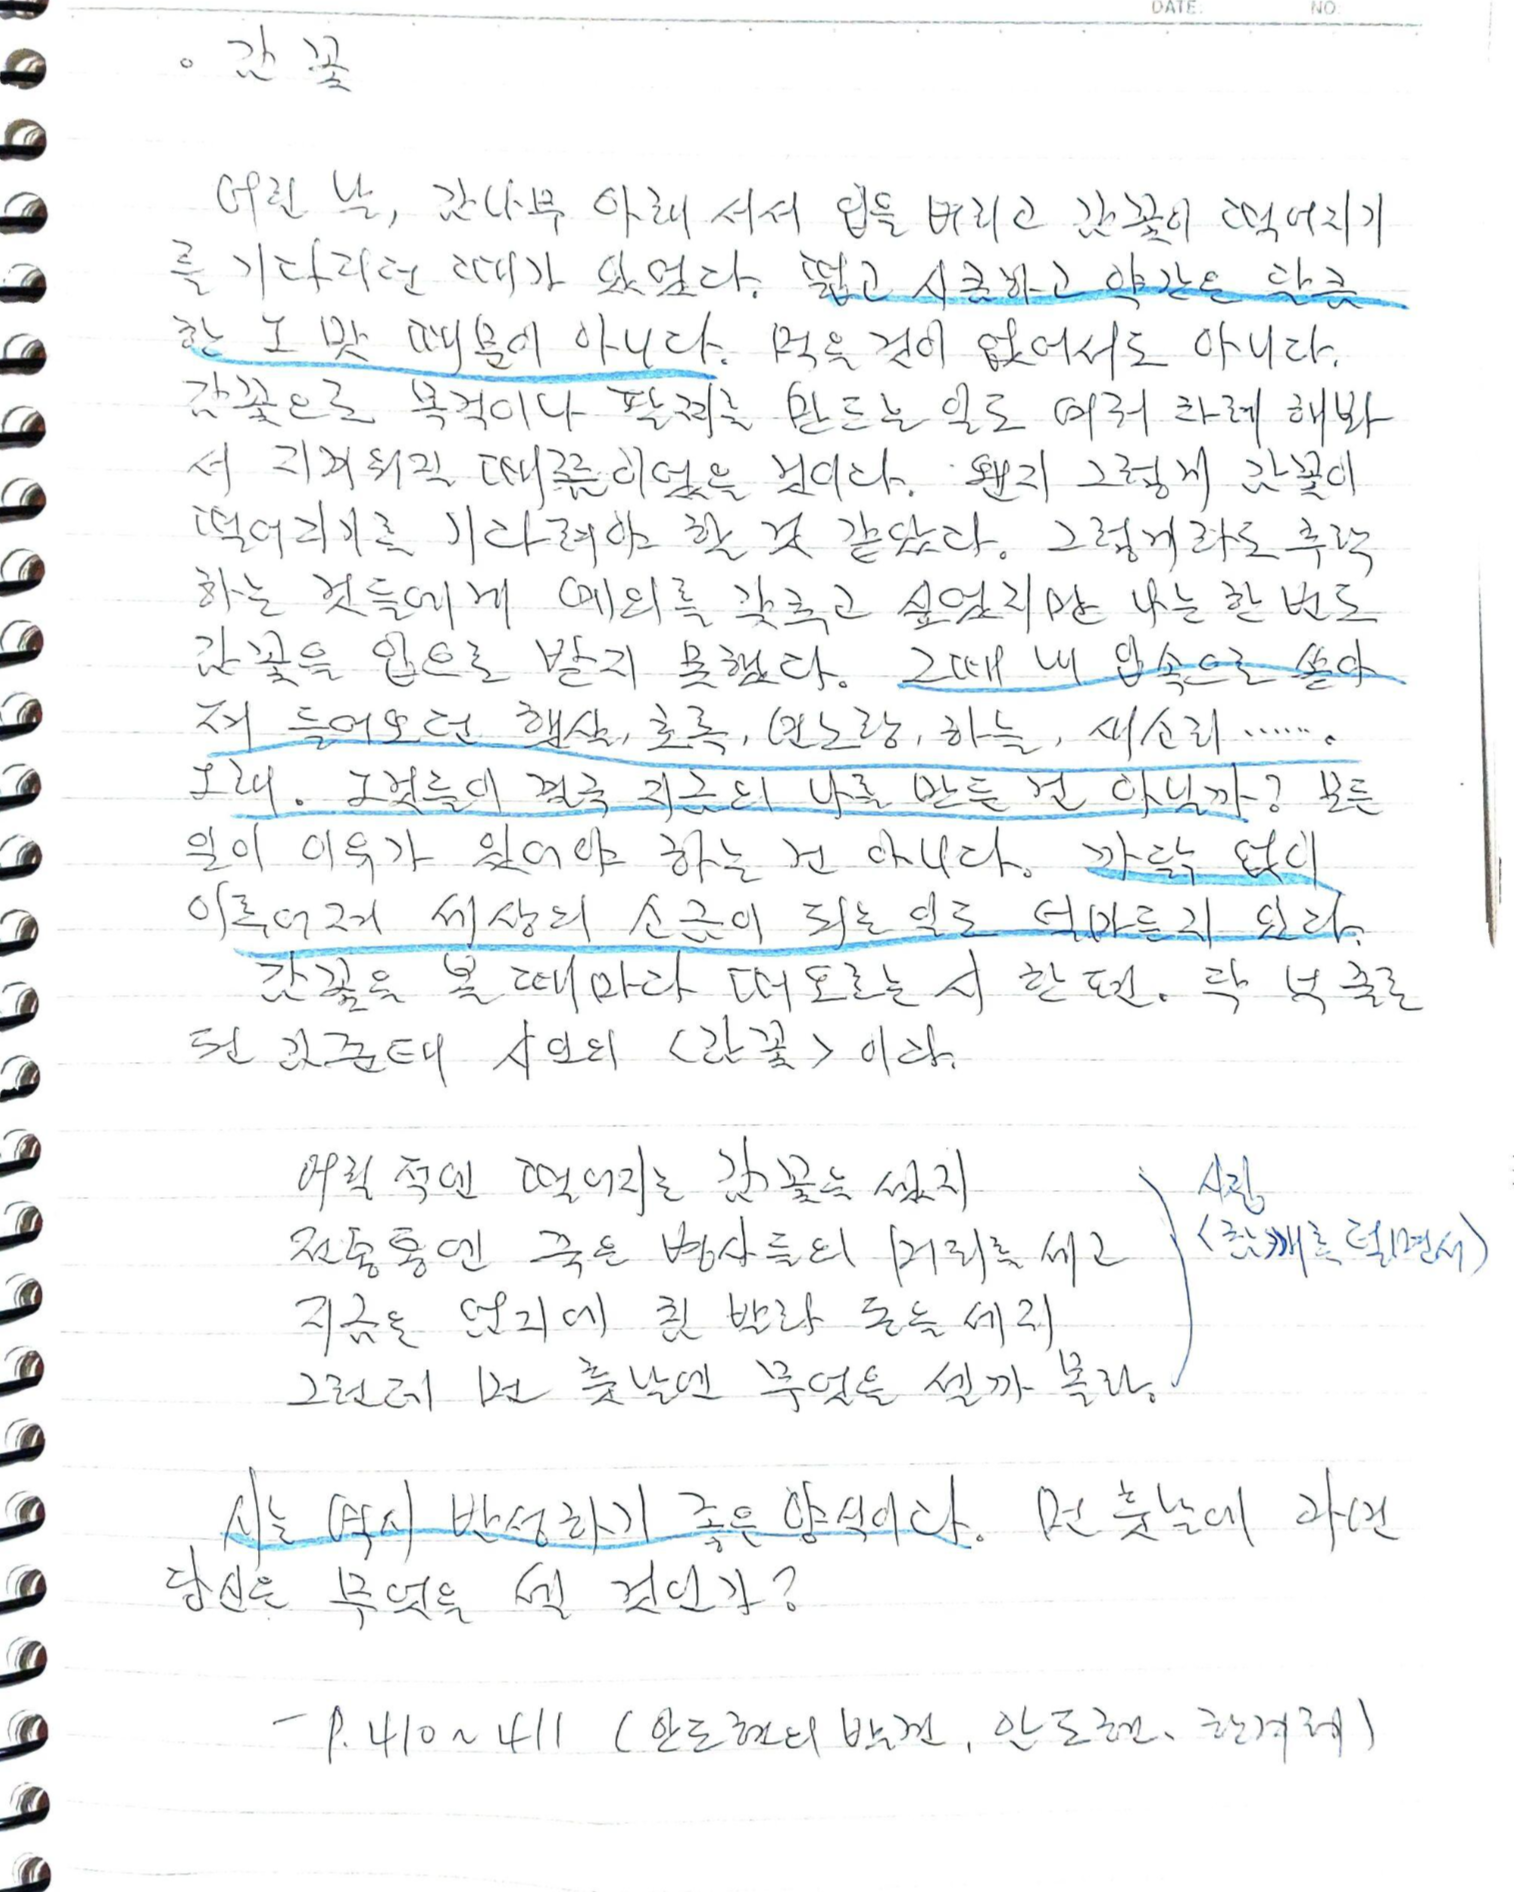 DATE: NO.
· 감꽃
어린 날, 감나무 아래 서서 입을 벌리고 감꽃이 떨어지기
를 기다리던 때가 있었다. 떫고 시큼하고 약간은 달큼
한 그 맛 때문이 아니다. 먹을 것이 없어서도 아니다.
감꽃으로 목걸이나 팔찌를 만드는 일도 여러 차례 해봐
서 지겨워질 때쯤이었을 것이다. 왠지 그렇게 감꽃이
떨어지기를 기다려야 할 것 같았다. 그렇게라도 추락
하는 것들에게 예의를 갖추고 싶었지만 나는 한 번도
감꽃을 입으로 받지 못했다. 그때 내 입속으로 쏟아
져 들어오던 햇살, 초록, 연노랑, 하늘, 새소리 …….
그래. 그것들이 결국 지금의 나를 만든 건 아닐까? 모든
일이 이유가 있어야 하는 건 아니다. 까닭 없이
이루어져 세상의 소금이 되는 일도 얼마든지 있다.
감꽃을 볼 때마다 떠오르는 시 한 편. 딱 넉 줄로
된 김준태 시인의 <감꽃> 이다.
어릴 적엔 떨어지는 감꽃을 셌지
전쟁통엔 죽은 병사들의 머리를 세고
지금은 엄지에 침 발라 돈을 세지
그런데 먼 훗날엔 무엇을 셀까 몰라.
시집
<참깨를 털면서>
시는 역시 반성하기 좋은 양식이다. 먼 훗날에 과연
당신은 무엇을 셀 것인가?
- P. 410 ~ 411 (안도현의 발견, 안도현, 한겨레)